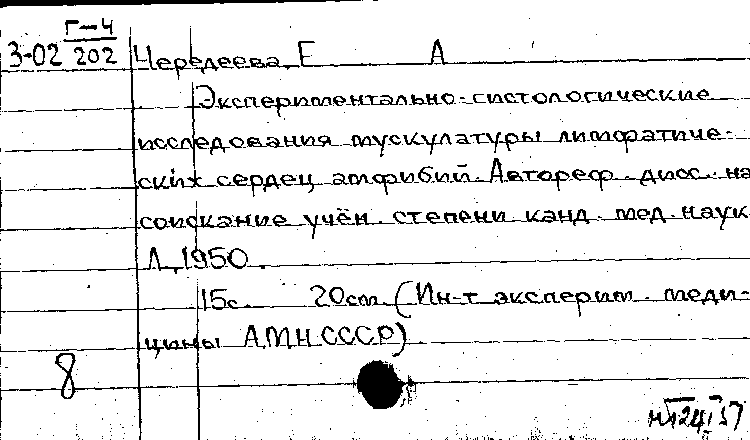 Г-4
3-02 202 Чередеева, Е А
Экспериментально-гистологические
исследования мускулатуры лимфатиче-
ских сердец амфибий. Автореф. дисс. на
соискание учён. степени канд. мед. наук
Л, 1950.
15с. 20см. (Ин-т эксперим. меди-
цины АМН СССР)
8